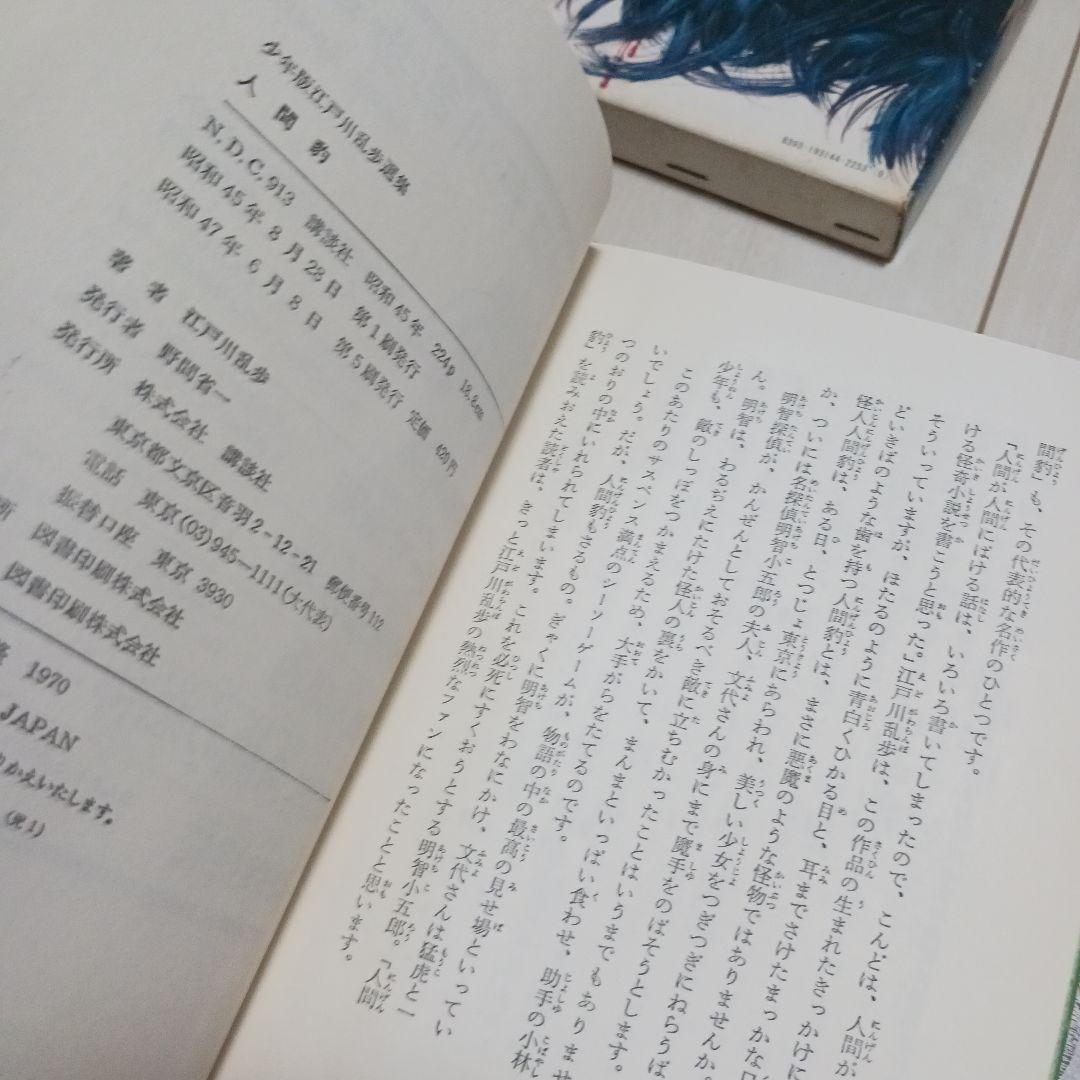 少年版江戸川乱歩選集
人間豹
N.D.C.913 講談社 昭和45年 224p 18.8cm
昭和45年8月28日 第1刷発行
昭和47年6月8日 第5刷発行 定価 420円
著者 江戸川乱歩
発行者 野間省一
発行所 株式会社 講談社
東京都文京区音羽2-12-21 郵便番号112
電話 東京(03)945-1111(大代表)
振替口座 東京 3930
所 図書印刷株式会社
図書印刷株式会社
1970
JAPAN
りかえいたします。
(児1)
8393-193144-2253
間豹」も、その代表的な名作のひとつです。
「人間が人間にばける話は、いろいろ書いてしまったので、こんどは、人間が
ける怪奇小説を書こうと思った。」江戸川乱歩は、この作品の生まれたきっかけに
そういっていますが、ほたるのように青白くひかる目と、耳までさけたまっかな口
どいきばのような歯を持つ人間豹とは、まさに悪魔のような怪物ではありませんか。
怪人人間豹は、ある日、とつじょ東京にあらわれ、美しい少女をつぎつぎにねらうば
か、ついには名探偵明智小五郎の夫人、文代さんの身にまで魔手をのばそうとします。
明智探偵が、かんぜんとしておそるべき敵に立ちむかったことはいうまでもありませ
ん。明智は、わるぢえにたけた怪人の裏をかいて、まんまといっぱい食わせ、助手の小林
少年も、敵のしっぽをつかまえるため、大手がらをたてるのです。
このあたりのサスペンス満点のシーソーゲームが、物語の中の最高の見せ場といってい
いでしょう。だが、人間豹もさるもの。ぎゃくに明智をわなにかけ、文代さんは猛虎と一
つのおりの中にいれられてしまいます。これを必死にすくおうとする明智小五郎。『人間
豹』を読みおえた読者は、きっと江戸川乱歩の熱烈なファンになったことと思います。